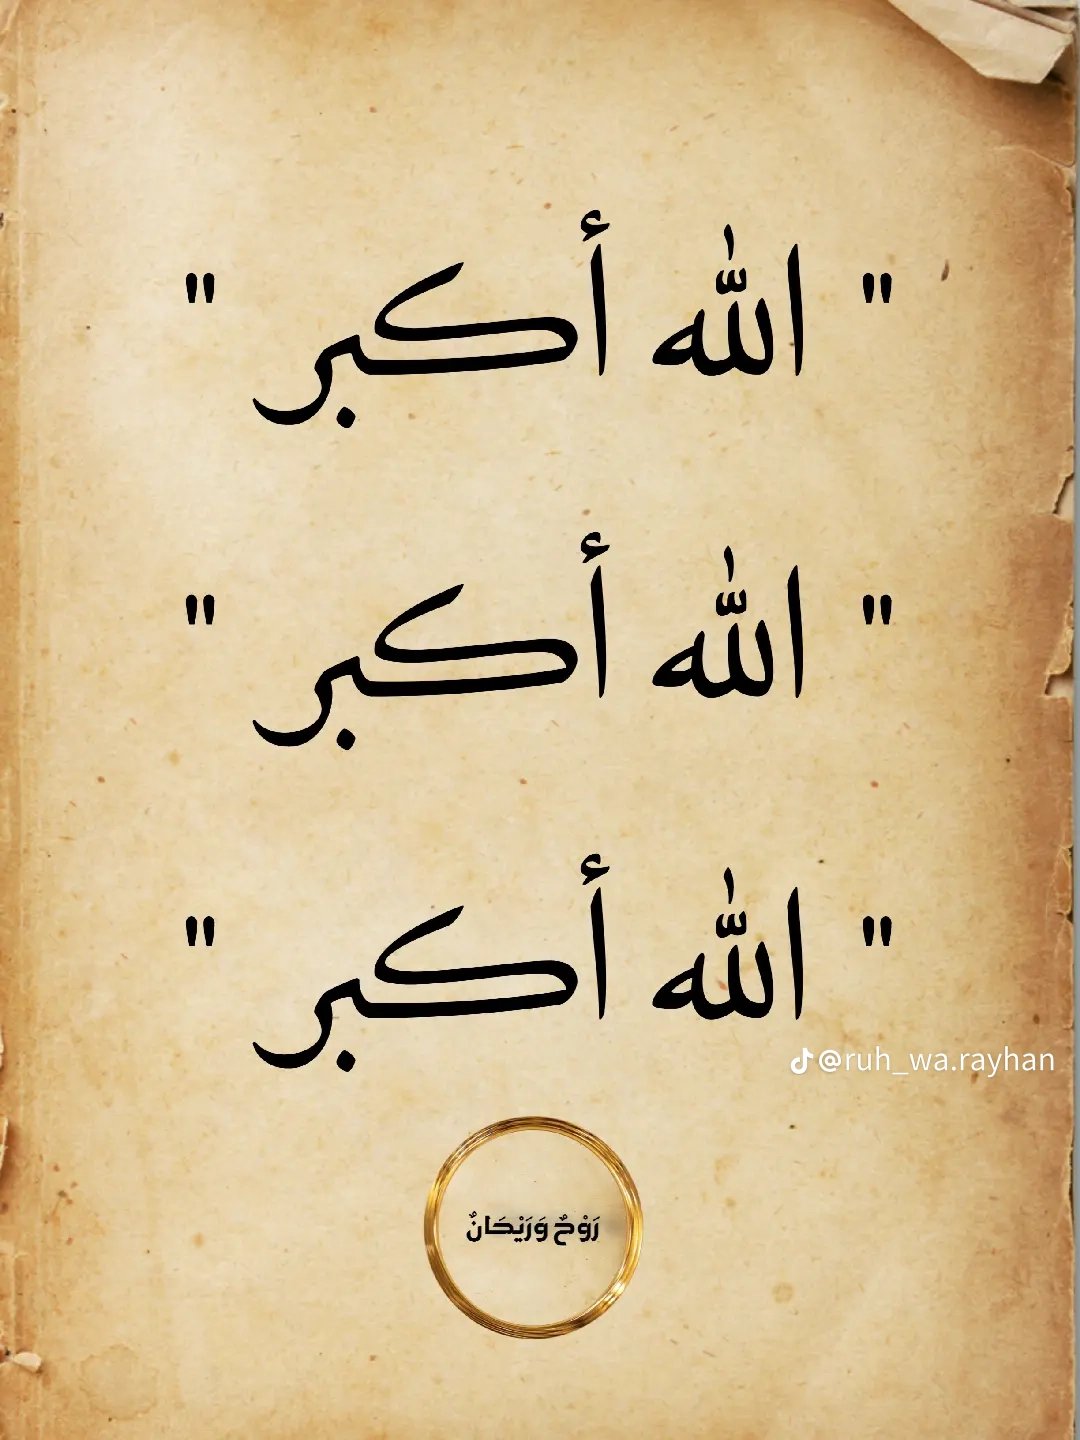 " الله أكبر "
" الله أكبر "
" الله أكبر "
@ruh_wa.rayhan
رَوْحٌ وَرَيْحَانٌ